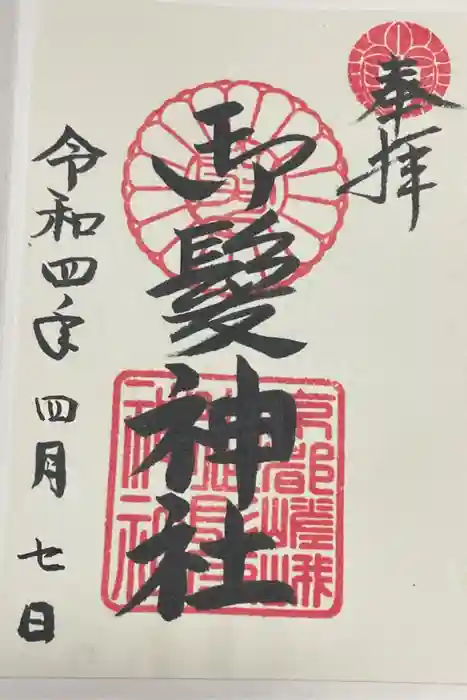 奉拝
御髪神社
京都嵯峨
御髪
神社
令和四年四月七日